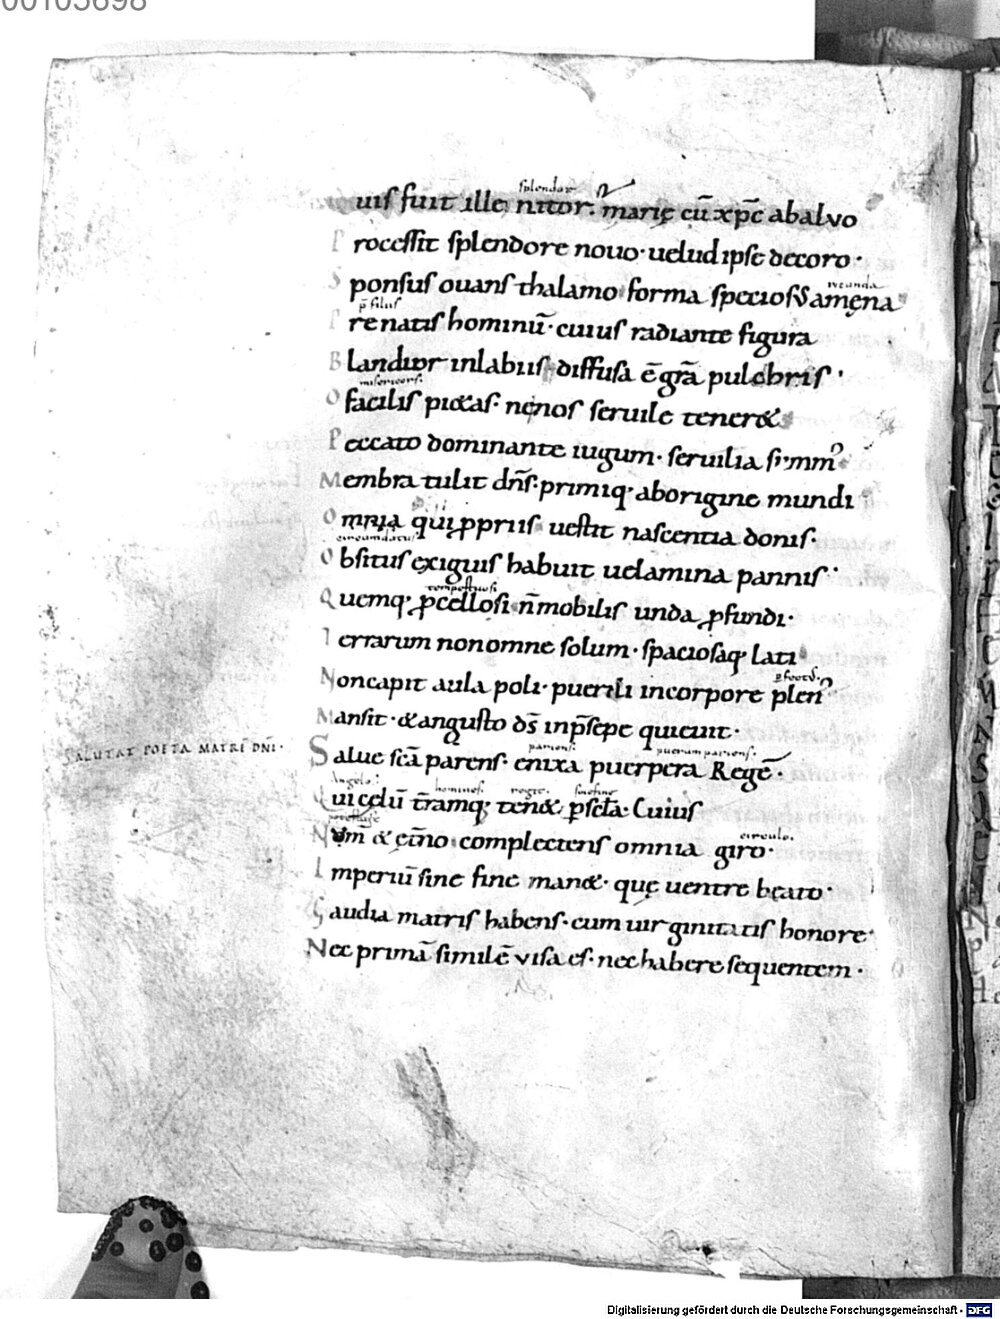 00105698
splendor
uis fuit ille nitor. marię cū xp̄c abaluo
Processit splendore nouo· uelud ipse decoro·
iucunda
Sponsus ouans thalamo forma speciosus amęna
p̄ filius
Prenatis hominū· cuius radiante figura
Blanditur inlabiis diffusa ē gr̄a pulchris·
misericors.
O facilis pietas· nenos seruile teneret
Peccato dominante iugum· seruilia summ
Membra tulit dn̄s· primiq· aborigine mundi
Omnia qui ꝓpriis uestit nascentia donis·
circumdatus
Obsitus exiguis habuit uelamina pannis·
tempestuosi
Quemq· ꝓcellosi n̄ mobilis unda ꝓfundi·
Terrarum nonomne solum· spaciosaq· lati
Noncapit aula poli· puerili incorpore plen
Mansit· & angusto ds̄ inp̄sepe quieuit·
SALUTAT POETA MATRĒ DN̄I·
pariens. puerum pariens.
Salue sc̄a parens· enixa puerpera Regē·
Angelos. homines. regit. sine fine
Qui celū t̄ramq· ten& ꝑ sc̄la· Cuius
potestas
Num̄ & et̄no complectens omnia giro·
circulo.
Imperiū sine fine man&· quę uentre beato·
Gaudia matris habens· cum uirginitatis honore·
Nec primā similē uisa es· nec habere sequentem·
Digitalisierung gefördert durch die Deutsche Forschungsgemeinschaft - DFG